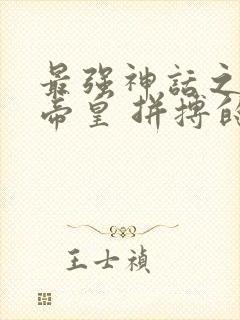 最强神话之
帝皇 拼搏的
王士禎